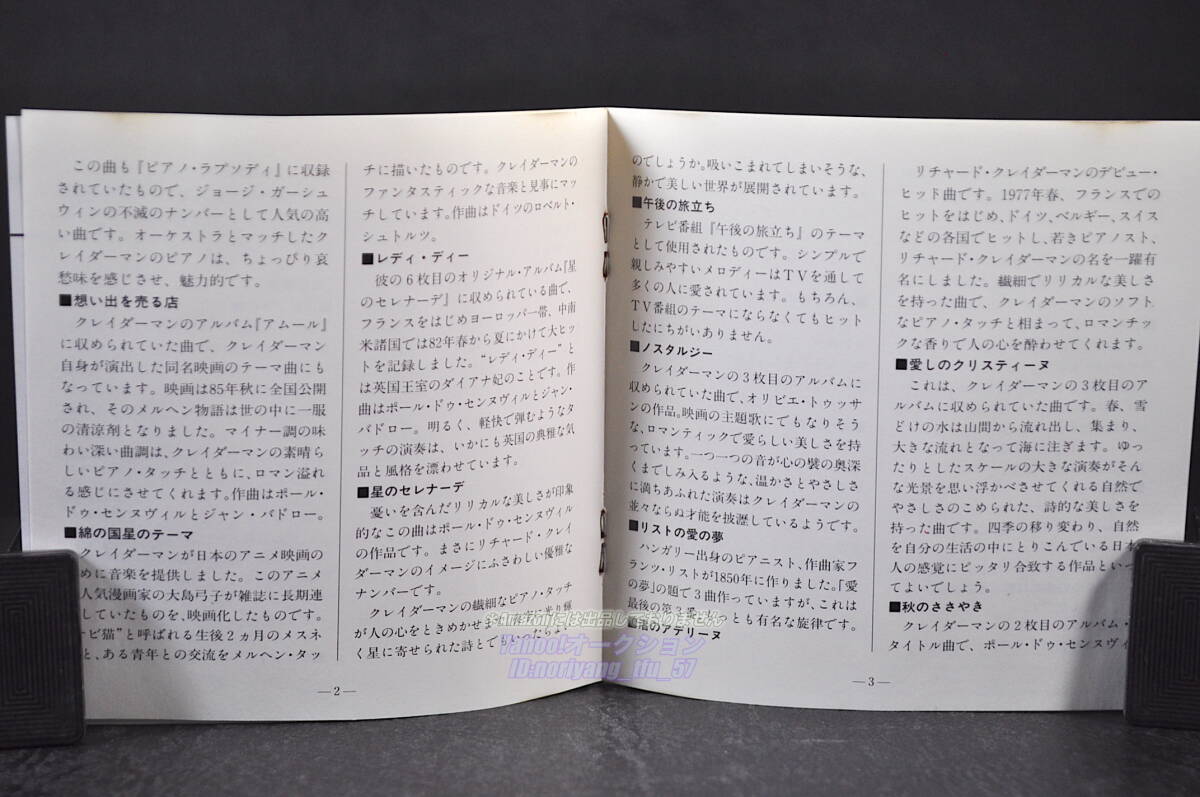 この曲も『ピアノ・ラプソディ』に収録
されていたもので、ジョージ・ガーシュ
ウィンの不滅のナンバーとして人気の高
い曲です。オーケストラとマッチしたク
レイダーマンのピアノは、ちょっぴり哀
愁味を感じさせ、魅力的です。
■想い出を売る店
クレイダーマンのアルバム『アムール』
に収められていた曲で、クレイダーマン
自身が演出した同名映画のテーマ曲にも
なっています。映画は85年秋に全国公開
され、そのメルヘン物語は世の中に一服
の清涼剤となりました。マイナー調の味
わい深い曲調は、クレイダーマンの素晴ら
しいピアノ・タッチとともに、ロマン溢れ
る感じにさせてくれます。作曲はポール・
ドゥ・センヌヴィルとジャン・バドロー。
■綿の国星のテーマ
クレイダーマンが日本のアニメ映画の
めに音楽を提供しました。このアニメ
人気漫画家の大島弓子が雑誌に長期連
していたものを、映画化したものです。
ビ猫”と呼ばれる生後2ヵ月のメスネ
と、ある青年との交流をメルヘン・タッ
—2—
チに描いたものです。クレイダーマンの
ファンタスティックな音楽と見事にマッ
チしています。作曲はドイツのロベルト・
シュトルツ。
■レディ・ディー
彼の6枚目のオリジナル・アルバム『星
のセレナーデ』に収められている曲で、
フランスをはじめヨーロッパ一帯、中南
米諸国では82年春から夏にかけて大ヒッ
トを記録しました。“レディ・ディー”と
は英国王室のダイアナ妃のことです。作
曲はポール・ドゥ・センヌヴィルとジャン・
バドロー。明るく、軽快で弾むようなタ
ッチの演奏は、いかにも英国の典雅な気
品と風格を漂わせています。
■星のセレナーデ
憂いを含んだリリカルな美しさが印象
的なこの曲はポール・ドゥ・センヌヴィル
の作品です。まさにリチャード・クレイ
ダーマンのイメージにふさわしい優雅な
ナンバーです。
クレイダーマンの繊細なピアノ・タッチ
が人の心をときめかせま
く星に寄せられた詩とでもいったらよい
のでしょうか。吸いこまれてしまいそうな、
静かで美しい世界が展開されています。
■午後の旅立ち
テレビ番組『午後の旅立ち』のテーマ
として使用されたものです。シンプルで
親しみやすいメロディーはTVを通して
多くの人に愛されています。もちろん、
TV番組のテーマにならなくてもヒット
したにちがいありません。
■ノスタルジー
クレイダーマンの3枚目のアルバムに
収められていた曲で、オリビエ・トゥッサ
ンの作品。映画の主題歌にでもなりそう
な、ロマンティックで愛らしい美しさを持
っています。一つ一つの音が心の襞の奥深
くまでしみ入るような、温かさとやさしさ
に満ちあふれた演奏はクレイダーマンの
並々ならぬ才能を披瀝しているようです。
■リストの愛の夢
ハンガリー出身のピアニスト、作曲家フ
ランツ・リストが1850年に作りました。「愛
の夢」の題で3曲作っていますが、これは
最後の第3番 っとも有名な旋律です。
■渚のアデリーヌ
—3—
リチャード・クレイダーマンのデビュー・
ヒット曲です。1977年春、フランスでの
ヒットをはじめ、ドイツ、ベルギー、スイス
などの各国でヒットし、若きピアニスト、
リチャード・クレイダーマンの名を一躍有
名にしました。繊細でリリカルな美しさ
を持った曲で、クレイダーマンのソフト
なピアノ・タッチと相まって、ロマンチッ
クな香りで人の心を酔わせてくれます。
■愛しのクリスティーヌ
これは、クレイダーマンの3枚目のア
ルバムに収められていた曲です。春、雪
どけの水は山間から流れ出し、集まり、
大きな流れとなって海に注ぎます。ゆっ
たりとしたスケールの大きな演奏がそん
な光景を思い浮かべさせてくれる自然で
やさしさのこめられた、詩的な美しさを
持った曲です。四季の移り変わり、自然
を自分の生活の中にとりこんでいる日本
人の感覚にピッタリ合致する作品といっ
てよいでしょう。
■秋のささやき
クレイダーマンの2枚目のアルバム・
タイトル曲で、ポール・ドゥ・センヌヴィ
には出品しておりません
Yahoo!オークション
ID:noriyang_ffu_57